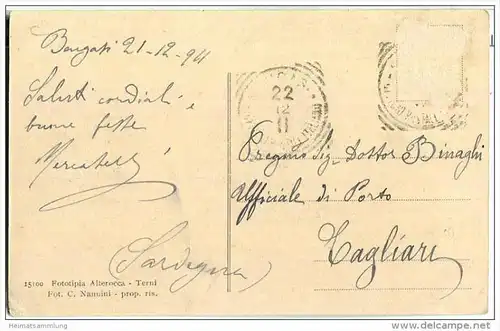 Bengasi 21-12-911
Saluti cordiali e
buone feste
Mercatelli
22
12
11
Pregmo Sig. Dottor Binaghi
Ufficiale di Porto
Cagliari
(Sardegna)
15100 Fototipia Alterocca - Terni
Fot. C. Nannini - prop. ris.
Heimatsammlung